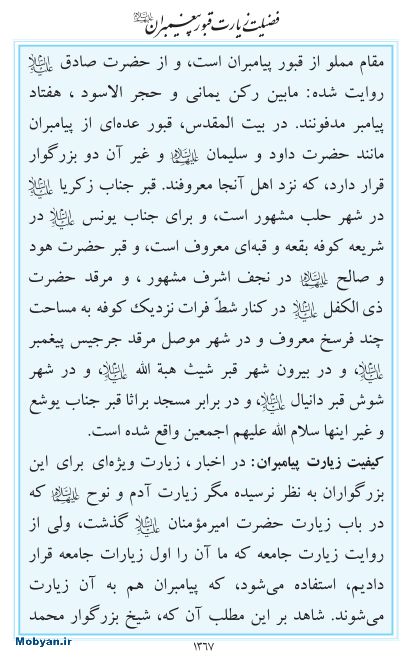 فضیلت زیارت قبور پیغمبران علیهم‌السلام
مقام مملو از قبور پیامبران است، و از حضرت صادق علیه‌السلام
روایت شده: مابین رکن یمانی و حجر الاسود، هفتاد
پیامبر مدفونند. در بیت المقدس، قبور عده‌ای از پیامبران
مانند حضرت داود و سلیمان علیهماالسلام و غیر آن دو بزرگوار
قرار دارد، که نزد اهل آنجا معروفند. قبر جناب زکریا علیه‌السلام
در شهر حلب مشهور است، و برای جناب یونس علیه‌السلام در
شریعه کوفه بقعه و قبه‌ای معروف است، و قبر حضرت هود
و صالح علیهماالسلام در نجف اشرف مشهور، و مرقد حضرت
ذی الکفل علیه‌السلام در کنار شطّ فرات نزدیک کوفه به مساحت
چند فرسخ معروف و در شهر موصل مرقد جرجیس پیغمبر
علیه‌السلام، و در بیرون شهر قبر شیث هبة الله علیه‌السلام، و در شهر
شوش قبر دانیال علیه‌السلام، و در برابر مسجد براثا قبر جناب یوشع
و غیر اینها سلام الله علیهم اجمعین واقع شده است.
کیفیت زیارت پیامبران: در اخبار، زیارت ویژه‌ای برای این
بزرگواران به نظر نرسیده مگر زیارت آدم و نوح علیهماالسلام که
در باب زیارت حضرت امیرمؤمنان علیه‌السلام گذشت، ولی از
روایت زیارت جامعه که ما آن را اول زیارات جامعه قرار
دادیم، استفاده می‌شود، که پیامبران هم به آن زیارت
می‌شوند. شاهد بر این مطلب آن که، شیخ بزرگوار محمد
Mobyan.ir
۱۳۶۷